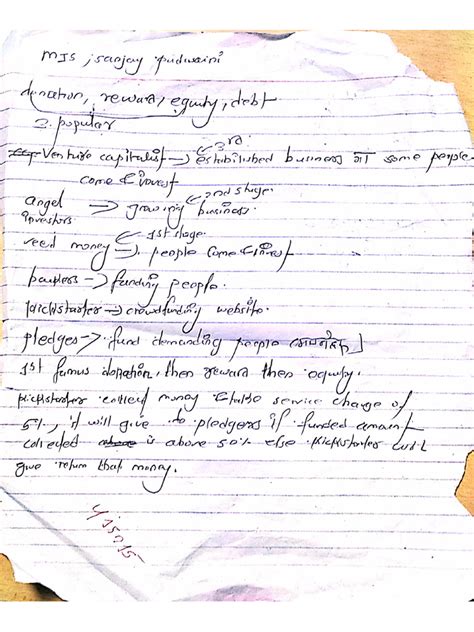 MIS, sanjay
donation, reward, equity, debt
3. popular
3rd.
Venture capitalist → established business मा some people
come & invest
2nd stage.
angel → growing business.
investors
1st stage.
seed money → people come & invest
backers → funding people.
kickstarter → crowdfunding website.
pledges → fund demanding people
1st famus donation, then reward then equity.
kickstarter collect money & take service charge of
5%, it will give to pledgers if funded amount
collected is above 50% else kickstarter will
give return that money.